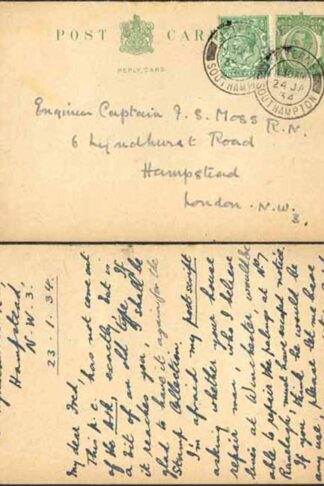 POST CARD
REPLY CARD.
SOUTHAMPTON
24 JA
34
SOUTHAMPTON
Engineer Captain F. S. Moss R.N.
6 Lyndhurst Road
Hampstead
London. N.W.
3.
Hampstead,
N.W.3.
23.1.34.
My dear Fred,
This p.c. has not come out
of the Ark, exactly, but is
a bit of an old type. If
it reaches you, I shall be
glad to have it again for the
Stamp Collection.
I'm afraid my postscript
asking whether your house
repair man who I believe
lives at Winchester would be
able to repair the
must have escaped notice.
If you think he would be
any use, please let me have